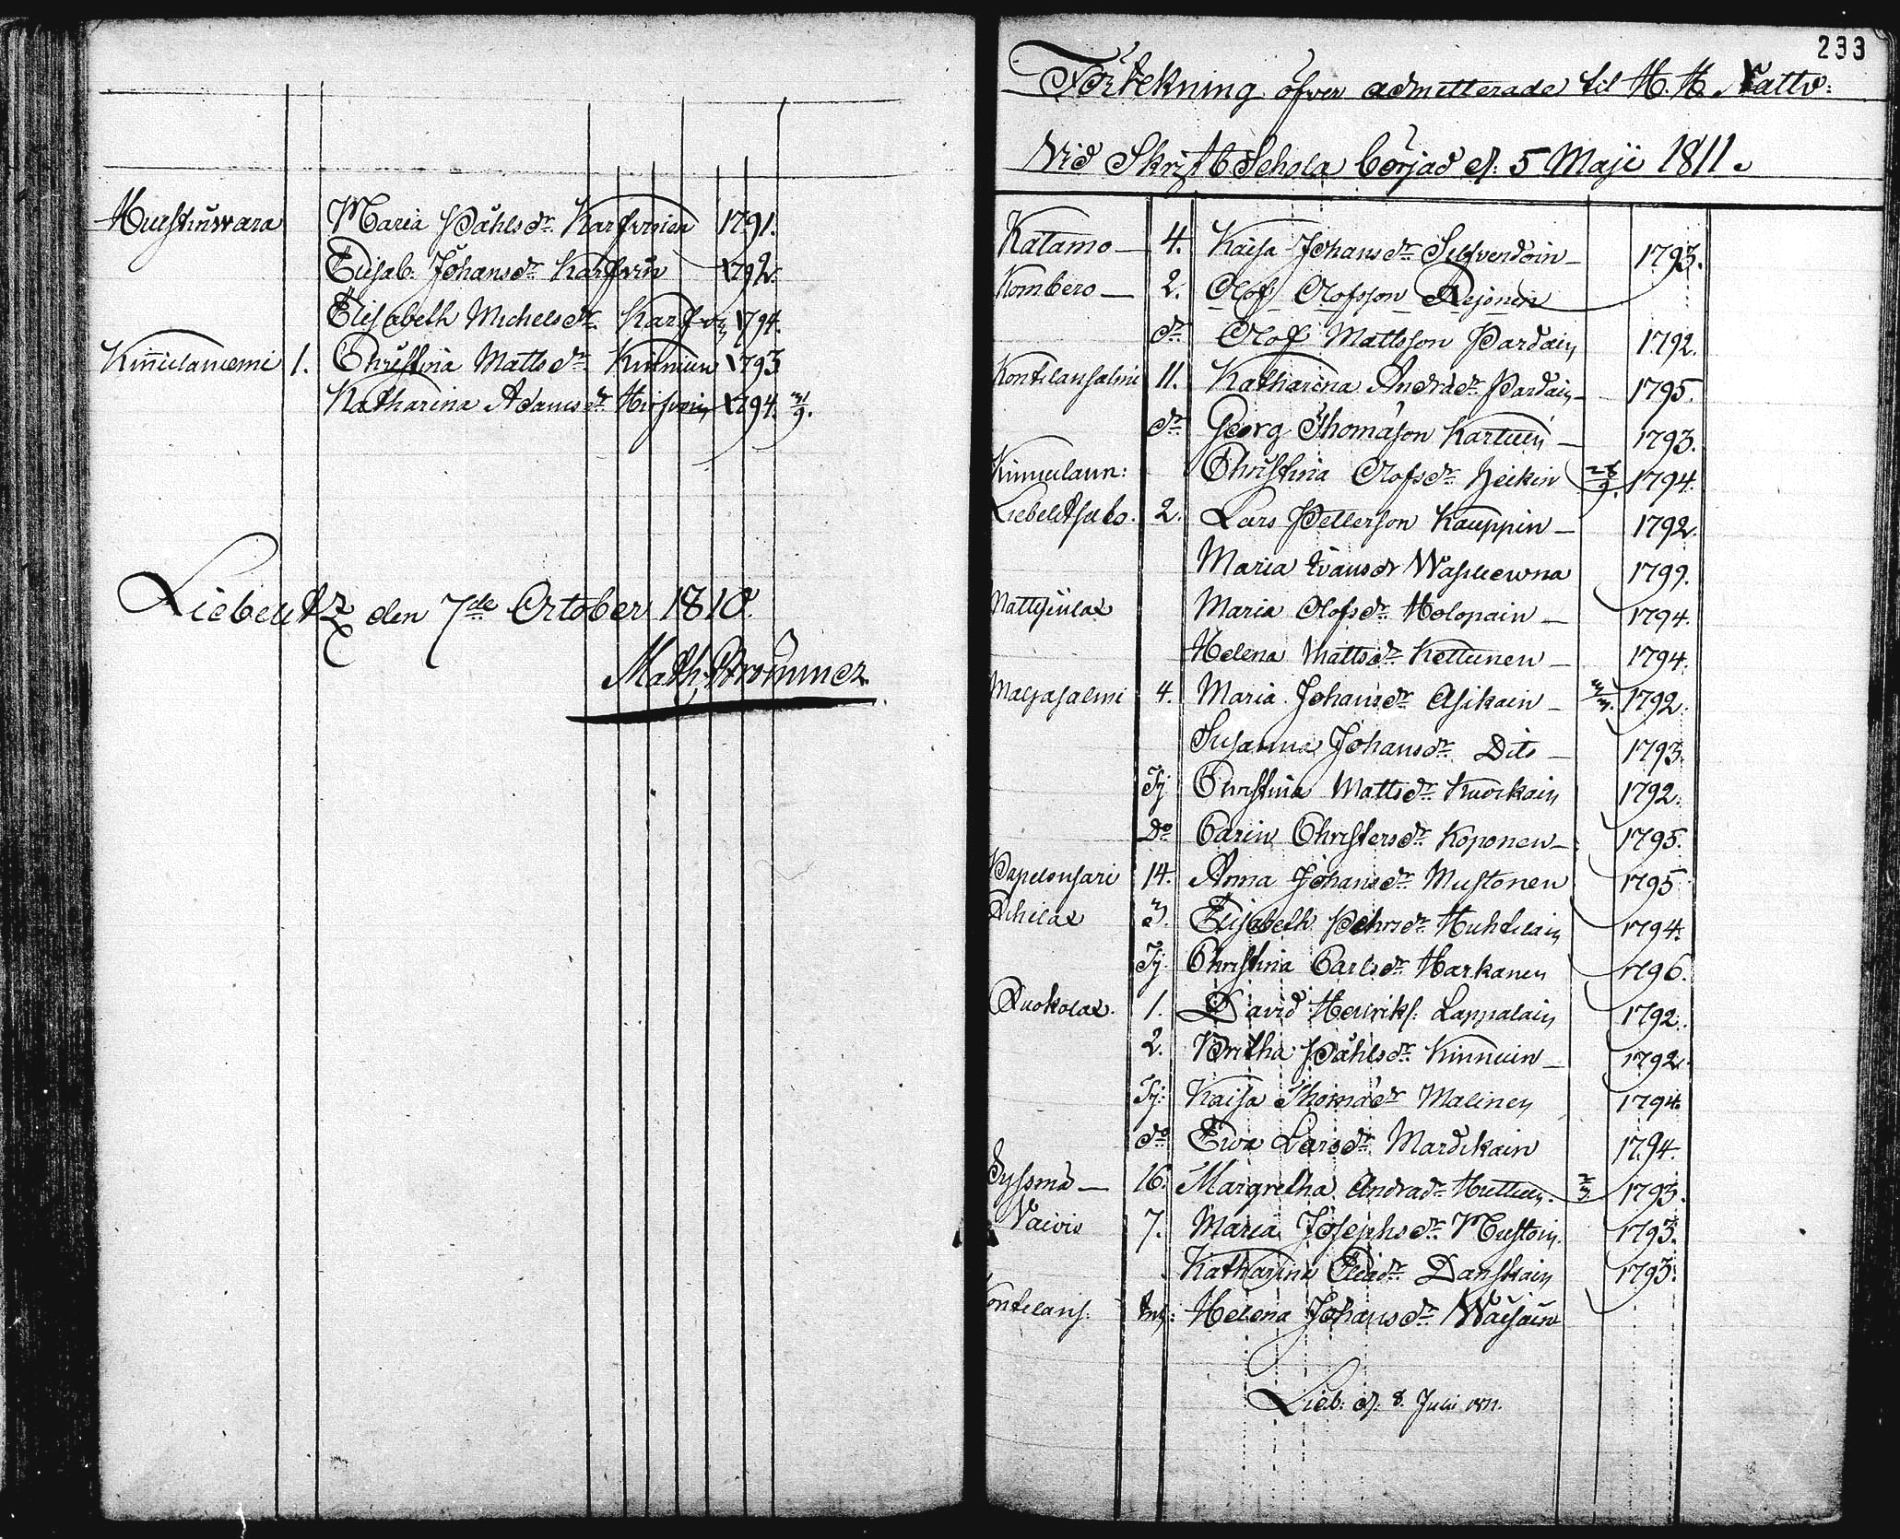 Hurskunwara Maria Påhlsdr Karfvoinen 1791.
Elisab. Johansdr Karfvoin 1792.
Elisabeth Michelsdr Karfvoin 1794.
Kinnulaniemi 1. Christina Mattsdr Kinnuin 1793
Katharina Adamsdr Hirfvoin 1794. 31/9.
Liebelitz den 7de October 1810.
Math. Brommer
233
Förtekning öfver admitterade til H. H. Nattv:
Vid Skrift Schola börjad d. 5 Maji 1811.
Katamo — 4. Kaisa Johansdr Silfvendoin — 1793.
Kombero — 2. Olof Olofsson Rejonen
do Olof Mattsson Pardain 1792.
Kontilansalmi 11. Katharina Andrædr Pardain — 1795.
do Georg Thomasson Kartuin — 1793.
Kinnulann: Christina Olofsdr Heikin 28/9. 1794.
Liebelitsulo. 2. Lars Pettersson Kauppin — 1792.
Maria Ivansdr Wasiliewna 1799.
Mattisenlax Maria Olofsdr Holopain — 1794.
Helena Mattsdr Kettunen — 1794.
Maljasalmi 4. Maria Johansdr Asikain — 3/3. 1792.
Susanna Johansdr Dito — 1793.
Tj Christina Mattsdr Kuorkain 1792.
Do Carin Christersdr Koponen — 1795.
Papelonsari 14. Anna Johansdr Mustonen 1795
Rihilax 3. Elisabeth Pehrsdr Huhtilain 1794.
Tj. Christina Carlsdr Harkanen 1796.
Ruokolax. 1. David Henriks. Lappalain 1792.
2. Britha Påhlsdr Kinnuin — 1792.
Tj: Kaisa Thomædr Malinen 1794.
do Ewa Larsdr Mardikain 1794.
Sysmä — 16. Margretha Andradr Huttuin. 2/3 1793.
Vaivio 7. Maria Josephsdr Mustoin. 1793.
Katharina Eliædr Danskain 1793.
Kontilans. Inh: Helena Johansdr Wäisäin
Lieb. d. 8. Juli 1811.